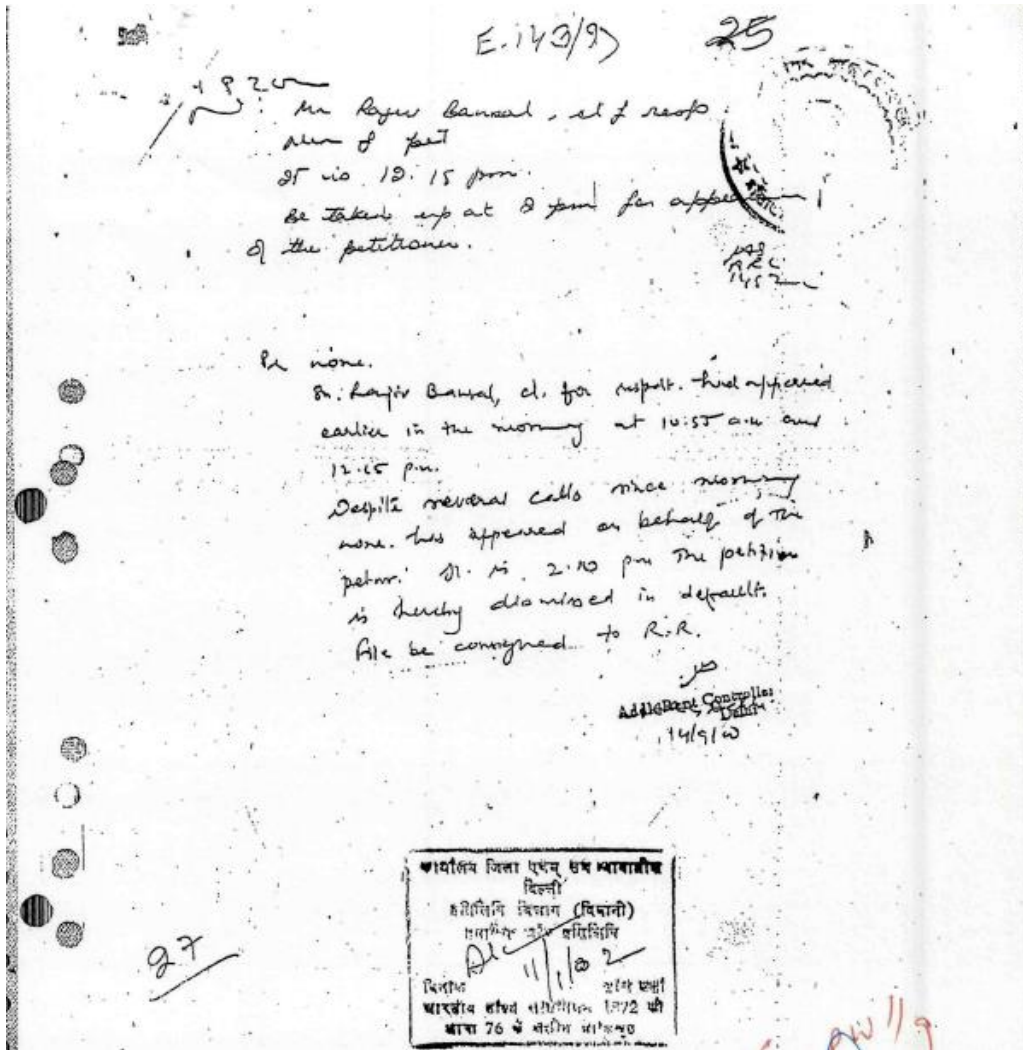 E.143/97
25
Mr Rajiv Bansal, cl f resp
None of pet
It is 12.15 pm.
Be taken up at 2 pm for
of the petitioner.
ARC
Pr none.
Sh. Rajiv Bansal, cl. for respdt. had appeared
earlier in the morning at 10:55 a.m and
12.15 p.m.
Despite several calls since morning
none. has appeared on behalf of the
petnr. It is 2.10 pm The petition
is hereby dismissed in default.
File be consigned to R.R.
Addl. Rent Controller
Delhi
14/9/
कार्यालय जिला एवम् सत्र न्यायाधीश
दिल्ली
प्रतिलिपि विभाग (दिवानी)
प्रतिलिपि
11/1/02
दिनांक
भारतीय 1872 की
धारा 76 के
27